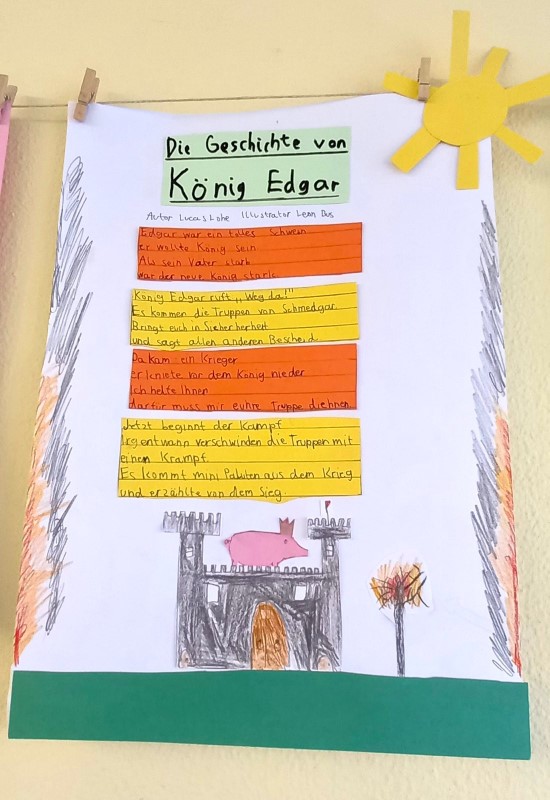 Die Geschichte von
König Edgar
Autor Lucas Lohe Illustrator Lenn Dus
Edgar war ein tolles Schwein
er wollte König sein
Als sein Vater starb
war der neue König stark
König Edgar ruft „Weg da!"
Es kommen die Truppen von Schmedgar
Bringt euch in Sicherherheit
und sagt allen anderen Bescheid
Da kam ein Krieger
er kniete vor dem König nieder
ich helte Ihnen
darfür muss mir euhre Truppe diehnen
Jetzt beginnt der Kampf
Irgentwann verschwinden die Truppen mit
einen Krampf.
Es kommt mini Pakuten aus dem Krieg
und erzählte von dem Sieg.